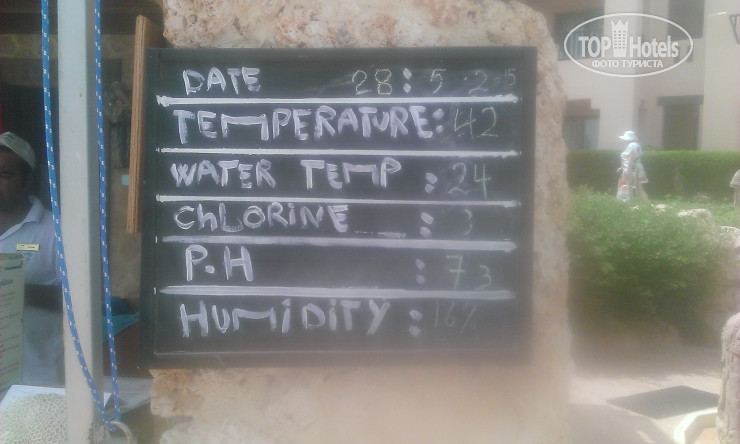 TOP Hotels
ФОТО ТУРИСТА
DATE 28:5 2.15
TEMPERATURE: 42
WATER TEMP : 24
ChLORINE : 3
P.H : 73
HUMiDiTY : 16%